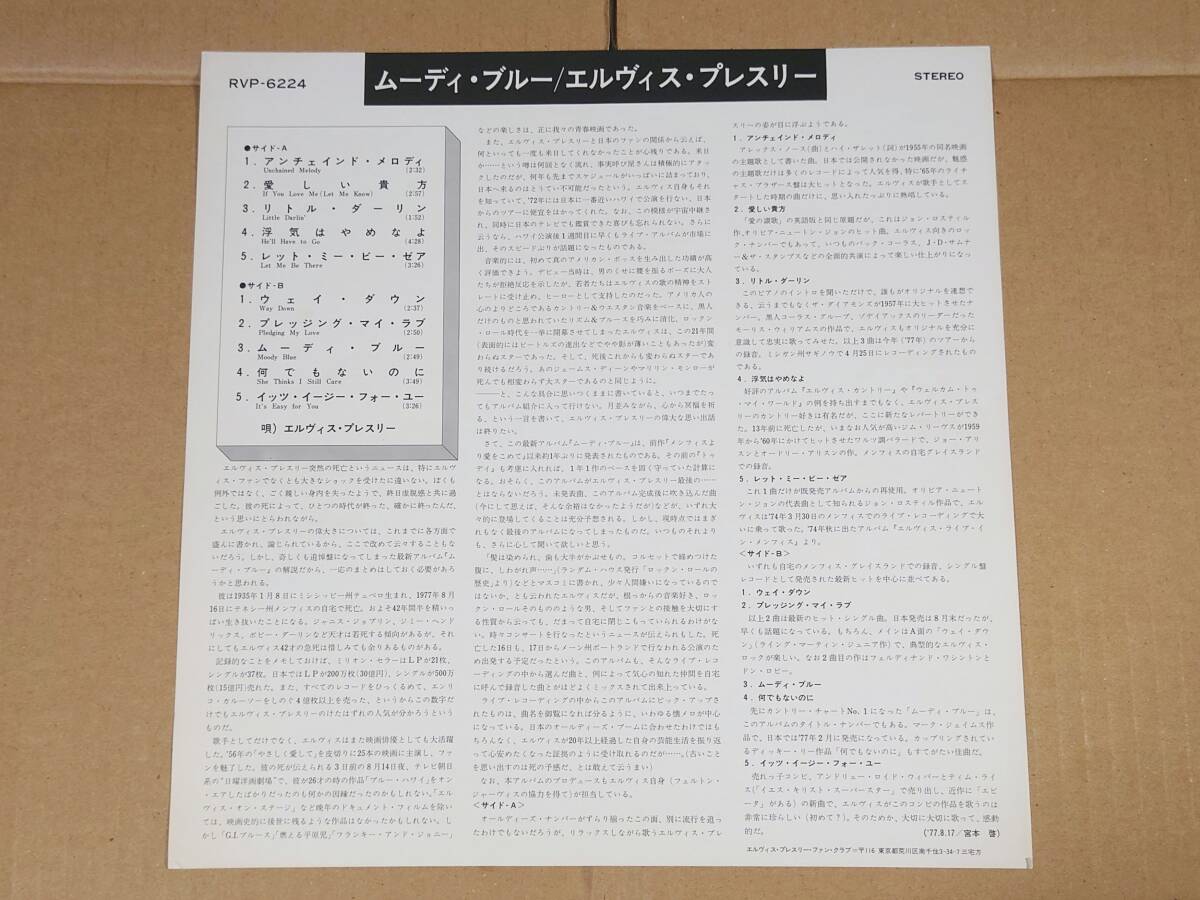 RVP-6224
ムーディ・ブルー/エルヴィス・プレスリー
STEREO
●サイド-A
1．アンチェインド・メロディ
Unchained Melody (2:32)
2．愛しい貴方
If You Love Me (Let Me Know) (2:57)
3．リトル・ダーリン
Little Darlin' (1:52)
4．浮気はやめなよ
He'll Have to Go (4:28)
5．レット・ミー・ビー・ゼア
Let Me Be There (3:26)
●サイド-B
1．ウェイ・ダウン
Way Down (2:37)
2．プレッジング・マイ・ラブ
Pledging My Love (2:50)
3．ムーディ・ブルー
Moody Blue (2:49)
4．何でもないのに
She Thinks I Still Care (3:49)
5．イッツ・イージー・フォー・ユー
It's Easy for You (3:26)
唄）エルヴィス・プレスリー
エルヴィス・プレスリー突然の死亡というニュースは、特にエルヴ
ィス・ファンでなくとも大きなショックを受けたに違いない。ぼくも
例外ではなく、ごく親しい身内を失ったようで、終日虚脱感と共に過
ごした。彼の死によって、ひとつの時代が終った、確かに終ったんだ、
という思いにとらわれながら。
エルヴィス・プレスリーの偉大さについては、これまでに各方面で
盛んに書かれ、論じられているから、ここで改めて云々することもな
いだろう。しかし、奇しくも追悼盤になってしまった最新アルバム『ム
ーディ・ブルー』の解説だから、一応のまとめはしておく必要があろ
うかと思われる。
彼は1935年1月8日にミシシッピー州テュペロ生まれ、1977年8月
16日にテネシー州メンフィスの自宅で死亡。およそ42年間半を精いっ
ぱい生き抜いたことになる。ジャニス・ジョプリン、ジミー・ヘンド
リックス、ボビー・ダーリンなど天才は若死する傾向があるが、それ
にしてもエルヴィス42才の急死は惜しみても余りあるものがある。
記録的なことをメモしておけば、ミリオン・セラーはLPが21枚、
シングルが37枚。日本ではLPが200万枚(30億円)、シングルが500万
枚(15億円)売れた。また、すべてのレコードをひっくるめて、エンリ
コ・カルーソーをしのぐ4億枚以上を売った、というからこの数字だ
けでもエルヴィス・プレスリーのけたはずれの人気が分かろうという
ものだ。
歌手としてだけでなく、エルヴィスはまた映画俳優としても大活躍
した。'56年の「やさしく愛して」を皮切りに25本の映画に主演し、ファ
ンを魅了した。彼の死が伝えられる3日前の8月14日夜、テレビ朝日
系の"日曜洋画劇場"で、彼が26才の時の作品「ブルー・ハワイ」をオン
・エアしたばかりだったのも何かの因縁だったのかもしれない。「エル
ヴィス・オン・ステージ」など晩年のドキュメント・フィルムを除い
ては、映画史的に後世に残るような作品はなかったかもしれない。し
かし「G.I.ブルース」「燃える平原児」「フランキー・アンド・ジョニー」
などの楽しさは、正に我々の青春映画であった。
また、エルヴィス・プレスリーと日本のファンの関係から云えば、
何といっても一度も来日してくれなかったことが心残りである。来日
か……という噂は何回となく流れ、事実呼び屋さんは積極的にアタッ
クしたのだが、何年も先までスケジュールがいっぱいに詰まっており、
日本へ来るのはとうてい不可能だったという。エルヴィス自身もそれ
を知っていて、'72年には日本に一番近いハワイで公演を行ない、日本
からのツアーに便宜をはかってくれた。なお、この模様が宇宙中継さ
れ、同時に日本のテレビでも鑑賞できた喜びも忘れられない。さらに
云うなら、ハワイ公演後1週間目に早くもライブ・アルバムが市場に
出、そのスピードぶりが話題になったものである。
音楽的には、初めて真のアメリカン・ボッスを生み出した功績が高
く評価できよう。デビュー当時は、男のくせに腰を振るポーズに大人
たちが拒絶反応を示したが、若者たちはエルヴィスの歌の精神をスト
レートに受け止め、ヒーローとして支持したのだった。アメリカ人の
心のよりどころであるカントリー&ウエスタン音楽をベースに、黒人
だけのものと思われていたリズム&ブルースを巧みに消化、ロックン
・ロール時代を一挙に開幕させてしまったエルヴィスは、この21年間
(表面的にはビートルズの進出などでやや影が薄いこともあったが)変
わらぬスターであった。そして、死後これからも変わらぬスターであ
り続けるだろう。あのジェームス・ディーンやマリリン・モンローが
死んでも相変わらず大スターであるのと同じように。
――と、こんな具合に思いつくままに書いていると、いつまでたっ
てもアルバム紹介に入って行けない。月並みながら、心から冥福を祈
る、という一言を書いて、エルヴィス・プレスリーの偉大な思い出話
は終りたい。
さて、この最新アルバム『ムーディ・ブルー』は、前作『メンフィスよ
り愛をこめて』以来約1年ぶりに発表されたものである。その前の『トゥ
デイ』も考慮に入れれば、1年1作のペースを固く守っていた計算に
なる。おそらく、このアルバムがエルヴィス・プレスリー最後の……
とはならないだろう。未発表曲、このアルバム完成後に吹き込んだ曲
(今にして思えば、そんな余裕はなかったようだが)などが、いずれ大
々的に登場してくることは充分予想される。しかし、現時点ではまぎ
れもなく最後のアルバムになってしまったものだ。いつものそれより
も、さらに心して聞いて欲しいと思う。
「髪は染められ、歯も大半がかぶせもの。コルセットで締めつけた
腹に、しわがれ声……」(ランダム・ハウス発行「ロックン・ロールの
歴史」より)などとマスコミに書かれ、少々人間嫌いになっているので
はないか、とも云われたエルヴィスだが、根っからの音楽好き、ロッ
クン・ロールそのもののような男、そしてファンとの接触を大切にす
る性質から云っても、だまって自宅に閉じこもっていられるわけがな
い。時々コンサートを行なったというニュースが伝えられもした。死
亡した16日も、17日からメーン州ポートランドで行なわれる公演のた
め出発する予定だったという。このアルバムも、そんなライブ・レコ
ーディングの中から選んだ曲と、例によって気心の知れた仲間を自宅
に呼んで録音した曲とがほどよくミックスされて出来上っている。
ライブ・レコーディングの中からこのアルバムにピック・アップさ
れたものは、曲名を御覧になれば分るように、いわゆる懐メロが中心
になっている。日本のオールディーズ・ブームに合わせたわけではも
ちろんなく、エルヴィスが20年以上経過した自身の芸能生活を振り返
って心安めたくなった証拠のように受け取れるのだが……。(古いこと
を思い出すのは死の予感だ、とは敢えて云うまい)
なお、本アルバムのプロデュースもエルヴィス自身(フェルトン・
ジャーヴィスの協力を得て)が担当している。
<サイド-A>
オールディーズ・ナンバーがずらり揃ったこの面、別に流行を追っ
たわけでもないだろうが、リラックスしながら歌うエルヴィス・プレ
スリーの姿が目に浮ぶようである。
1．アンチェインド・メロディ
アレックス・ノース(曲)とハイ・ザレット(詞)が1955年の同名映画
の主題歌として書いた曲。日本では公開されなかった映画だが、魅惑
の主題歌だけは多くのレコードによって人気を得、特に'65年のライチ
ャス・ブラザース盤は大ヒットとなった。エルヴィスが歌手としてス
タートした時期の曲だけに、思い入れたっぷりに熱唱している。
2．愛しい貴方
「愛の讃歌」の英語版と同じ原題だが、これはジョン・ロスティル
作、オリビア・ニュートン・ジョンのヒット曲。エルヴィス向きのロッ
ク・ナンバーでもあって、いつものバック・コーラス、J・D・サムナ
ー&ザ・スタンプスなどの全面的共演によって楽しい仕上がりになっ
ている。
3．リトル・ダーリン
このピアノのイントロを聞いただけで、誰もがオリジナルを連想で
きる、云うまでもなくザ・ダイアモンズが1957年に大ヒットさせたナ
ンバー。黒人コーラス・グループ、ゾデイアックスのリーダーだった
モーリス・ウィリアムスの作品で、エルヴィスもオリジナルを充分に
意識して忠実に歌ってみせた。以上3曲は今年('77年)のツアーから
の録音。ミシガン州サギノウで4月25日にレコーディングされたもの
である。
4．浮気はやめなよ
好評のアルバム『エルヴィス・カントリー』や『ウェルカム・トゥ
・マイ・ワールド』の例を持ち出すまでもなく、エルヴィス・プレスリ
ーのカントリー好きは有名だが、ここに新たなレパートリーができ
た。13年前に死亡したが、いまなお人気が高いジム・リーヴスが1959年
から'60年にかけてヒットさせたワルツ調バラードで、ジョー・アリ
スンとオードリー・アリスンの作。メンフィスの自宅グレイスランド
での録音。
5．レット・ミー・ビー・ゼア
これ1曲だけが既発売アルバムからの再使用。オリビア・ニュート
ン・ジョンの代表曲として知られるジョン・ロスティル作品で、エル
ヴィスは'74年3月30日のメンフィスでのライブ・レコーディングで大
いに乗って歌った。'74年秋に出たアルバム『エルヴィス・ライブ・イ
ン・メンフィス』より。
<サイド-B>
いずれも自宅のメンフィス・グレイスランドでの録音、シングル盤
レコードとして発売された最新ヒットを中心に並べてある。
1．ウェイ・ダウン
2．プレッジング・マイ・ラブ
以上2曲は最新のヒット・シングル曲。日本発売は8月末だったが、
早くも話題になっている。もちろん、メインはA面の「ウェイ・ダウ
ン」(ライング・マーティン・ジュニア作)で、典型的なエルヴィス・
ロックが楽しい。なお2曲目の作はフェルディナンド・ワシントンと
ドン・ロビー。
3．ムーディ・ブルー
4．何でもないのに
先にカントリー・チャートNo.1になった「ムーディ・ブルー」は、
このアルバムのタイトル・ナンバーでもある。マーク・ジェイムス作
品で、日本では'77年2月に発売になっている。カップリングされてい
るディッキー・リー作品「何でもないのに」もすてがたい佳曲だ。
5．イッツ・イージー・フォー・ユー
売れっ子コンビ、アンドリュー・ロイド・ウィバーとティム・ライ
ス(「イエス・キリスト・スーパースター」で売り出し、近作に「エビ
ータ」がある)の新曲で、エルヴィスがこのコンビの作品を歌うのは
非常に珍らしい(初めて？)。そのためか、大切に大切に歌って、感動
的だ。
('77.8.17／宮本 啓)
エルヴィス・プレスリー・ファン・クラブ＝〒116 東京都荒川区南千住3-34-7三宅方